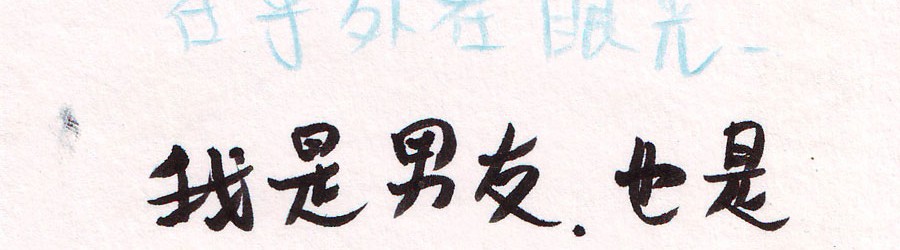 在乎外在眼光。
我是男友.也是